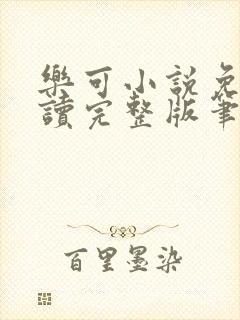 樂可小說免
讀完整版筆
百里墨染